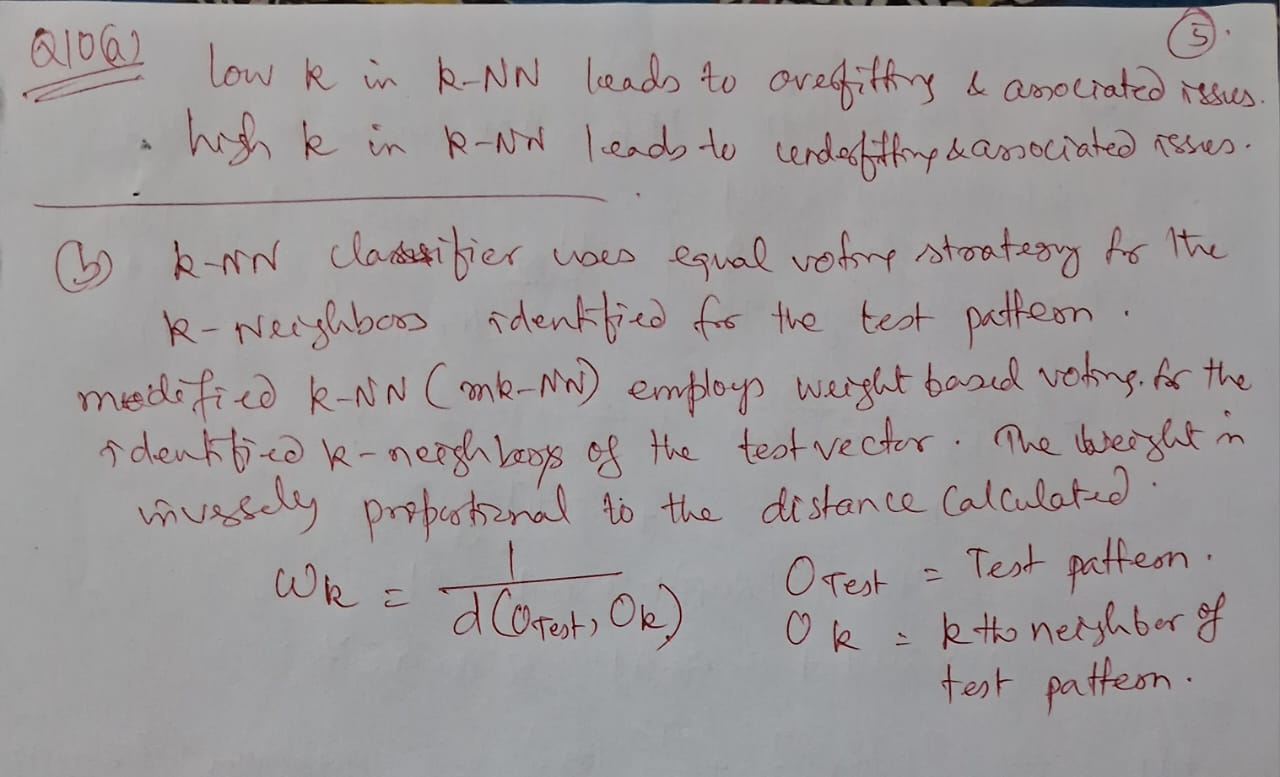 5.
Q10(a)
low k in k-NN leads to overfitting & associated issues.
. high k in k-NN leads to underfitting & associated issues.
(b) k-NN classifier uses equal voting strategy for the
k-Neighbors identified for the test pattern.
modified k-NN (mk-NN) employs weight based voting. for the
identified k-neighbors of the test vector. The weight is
inversely proportional to the distance calculated.
Wk = 1 / d(OTest, Ok)
OTest = Test pattern.
Ok = kth neighbor of
test pattern.